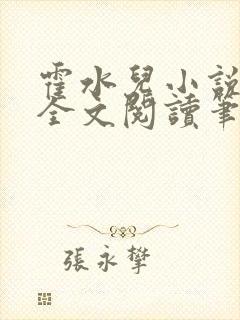 霍水兒小説
全文閱讀筆
張永攀